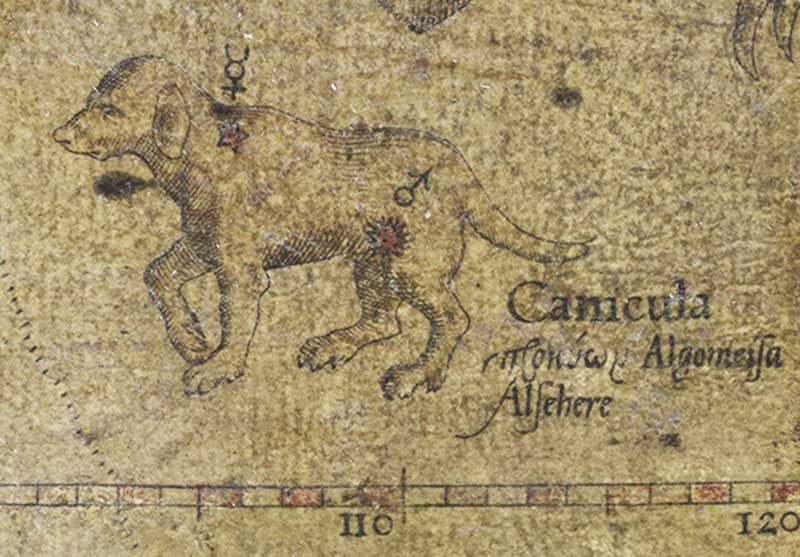 Canicula
προκύων Algomeisa
Alsehere
110 120